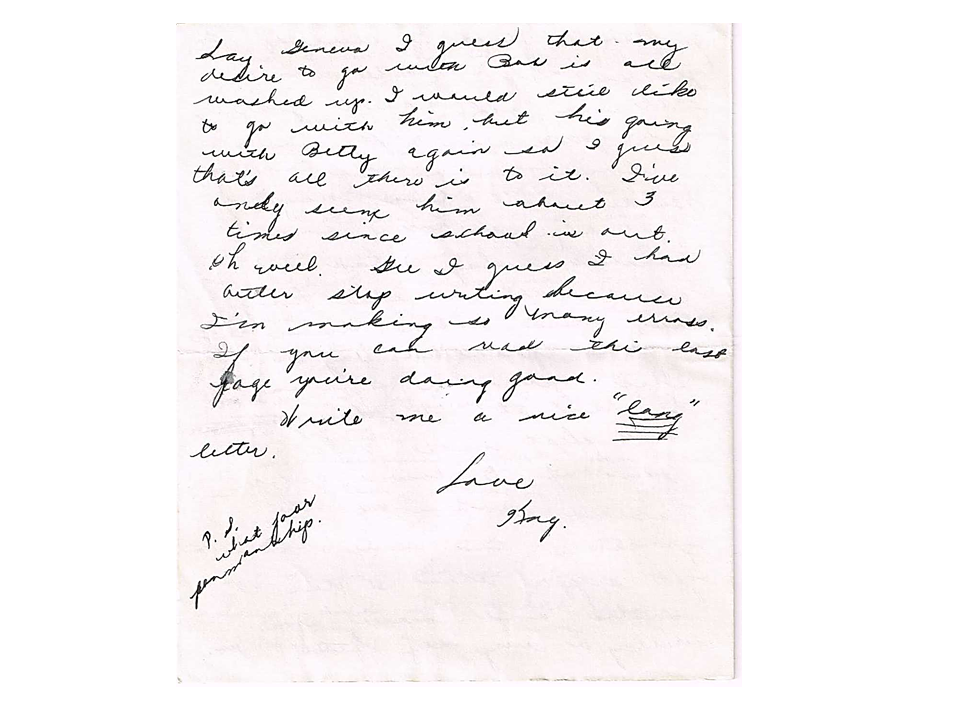 Say Geneva I guess that my
desire to go with Bob is all
washed up. I would still like
to go with him, but his going
with Betty again so I guess
that's all there is to it. I've
only seen him about 3
times since school is out.
Oh well. Gee I guess I had
better stop writing because
I'm making so many errors.
If you can read this last
page you're doing good.
Write me a nice "long"
letter.
Love
Kay.
P.S.
what poor
penmanship.